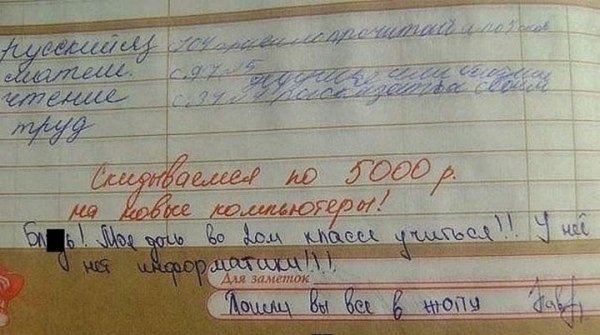 русский яз 104 правило прочитать
матем. с.97 №5
чтение с.34 №4 рассказать
труд
Скидываемся по 5000 р.
на новые компьютеры!
Бл дь! Моя дочь во 2ом классе учиться!! У неё
нет информатики!!!!
Для заметок
Пошли вы все в жопу